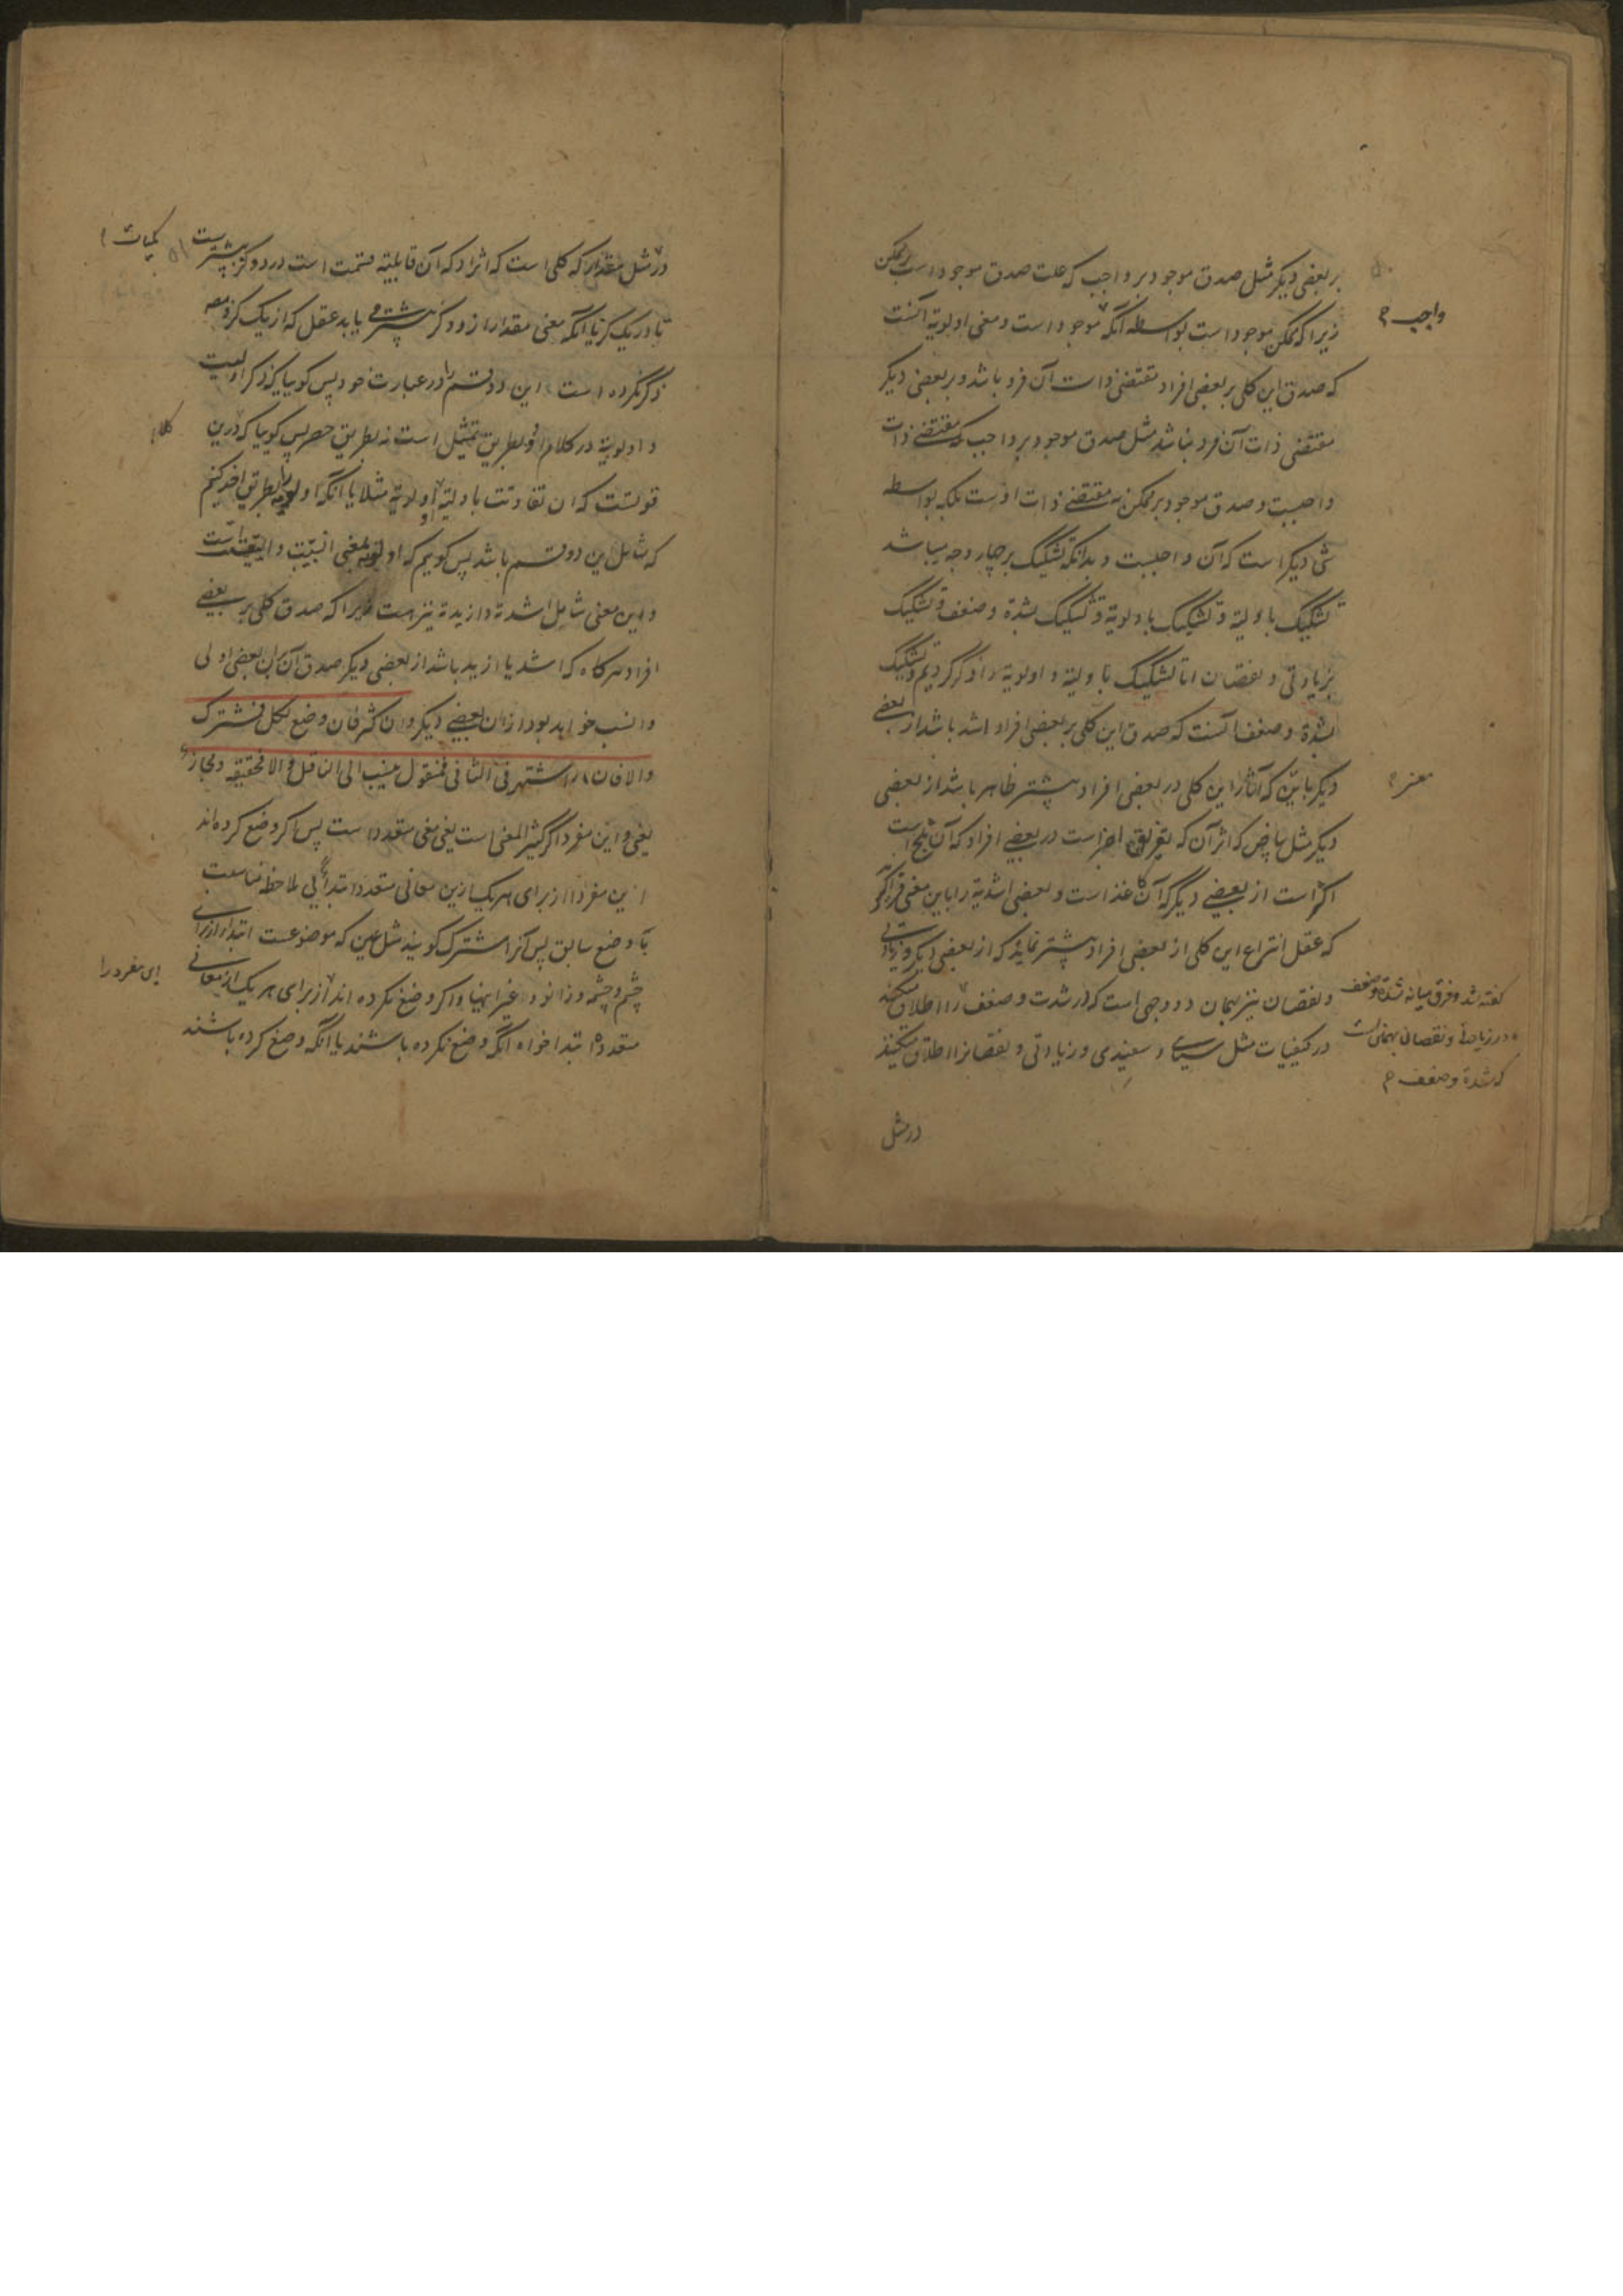 بر بعضی دیکر مثل صدق موجود بر واجب که علت صدق موجود است بر ممکن
زیرا که ممکن موجود است بواسطه آنکه موجود است و معنی اولویة آنست
واجب
که صدق این کلی بر بعضی افراد مقتضی ذات آن فرد باشد و بر بعضی دیکر
مقتضی ذات آن فرد نباشد مثل صدق موجود بر واجب که مقتضے ذات
واجبست و صدق موجود بر ممکن نه مقتضے ذات اوست بلکه بواسطه
شی دیکر است که آن واجبست و بدانکه تشکیک بر چهار وجه میباشد
تشکیک باولیة و تشکیک باولویة و تشکیک بشدة و ضعف و تشکیک
بزیادتی و نقصان اما تشکیک باولیة و اولویة را ذکر کردیم و تشکیک
بشدة و ضعف آنست که صدق این کلی بر بعضی افراد اشد باشد از بعضے
دیکر باین که آثار این کلی در بعضی افراد بیشتر ظاهر باشد از بعضی
معنی
دیکر مثل بیاض که اثر آن که تفریق بصر است در بعضے افراد که آن ثلج است
اکثر است از بعضے دیکر که آن کاغذ است و بعضی اشدیة را باین معنی
که عقل انتزاع این کلی از بعضی افراد بیشتر نماید که از بعضی دیکر و زیادتی
و نقصان نیز بهمان دو وجهی است که در شدت و ضعف را اطلاق میکنند
کفته شد و فرق میانه شدة و ضعف
و در زیادة و نقصان همانست
که شدة و ضعف
در کیفیات مثل سیاهے و سفیدی و زیادتی و نقصانرا اطلاق میکنند
در مثل
در مثل مقدار که کلی است که اثر او که آن قابلیة قسمت است در دو کز بیشترست
کمیات
تا در یک کز یا آنکه معنی مقدار از دو کز بیشتر می یابد عقل که از یک کز و مصه
ذکر نکرده است این دو قسم را در عبارت خود پس کوییا که ذکر اولیت
و اولویة در کلام او بطریق تمثیل است نه بطریق حصر پس کوییا که درین
کلام
قولست که ان تفاوتت باولیة او اولویة مثلا یا آنکه اولویة را بطریقی اخذ کنیم
که شامل این دو قسم باشد پس کوییم که اولویة بمعنی انسبیت و الیقیت است
و این معنی شامل اشدیة و ازیدیة نیز هست زیرا که صدق کلی بر بعضے
افراد هرکاه که اشد یا ازید باشد از بعضی دیکر صدق آن بران بعضی اولی
و انسب خواهد بود ازان بعضے دیکر وان کثر فان وضع لکل فمشترک
والا فان اشتهر فی الثانی فمنقول ینسب الی الناقل والا فحقیقة و مجاز
یعنی و این مفرد اکر کثیر المعنی است یعنی معنی متعدد است پس اکر وضع کرده اند
این مفرد را از برای هر یک ازین معانی متعدد ابتداء بی ملاحظه مناسبت
با وضع سابق پس آنرا مشترک کویند مثل عین که موضوعست ابتداء از برای
چشم و چشمه و زانو و غیر اینها و اکر وضع نکرده اند از برای هر یک از معانی
ای مفرد را
متعدده ابتدا خواه آنکه وضع نکرده باشند یا آنکه وضع کرده باشند